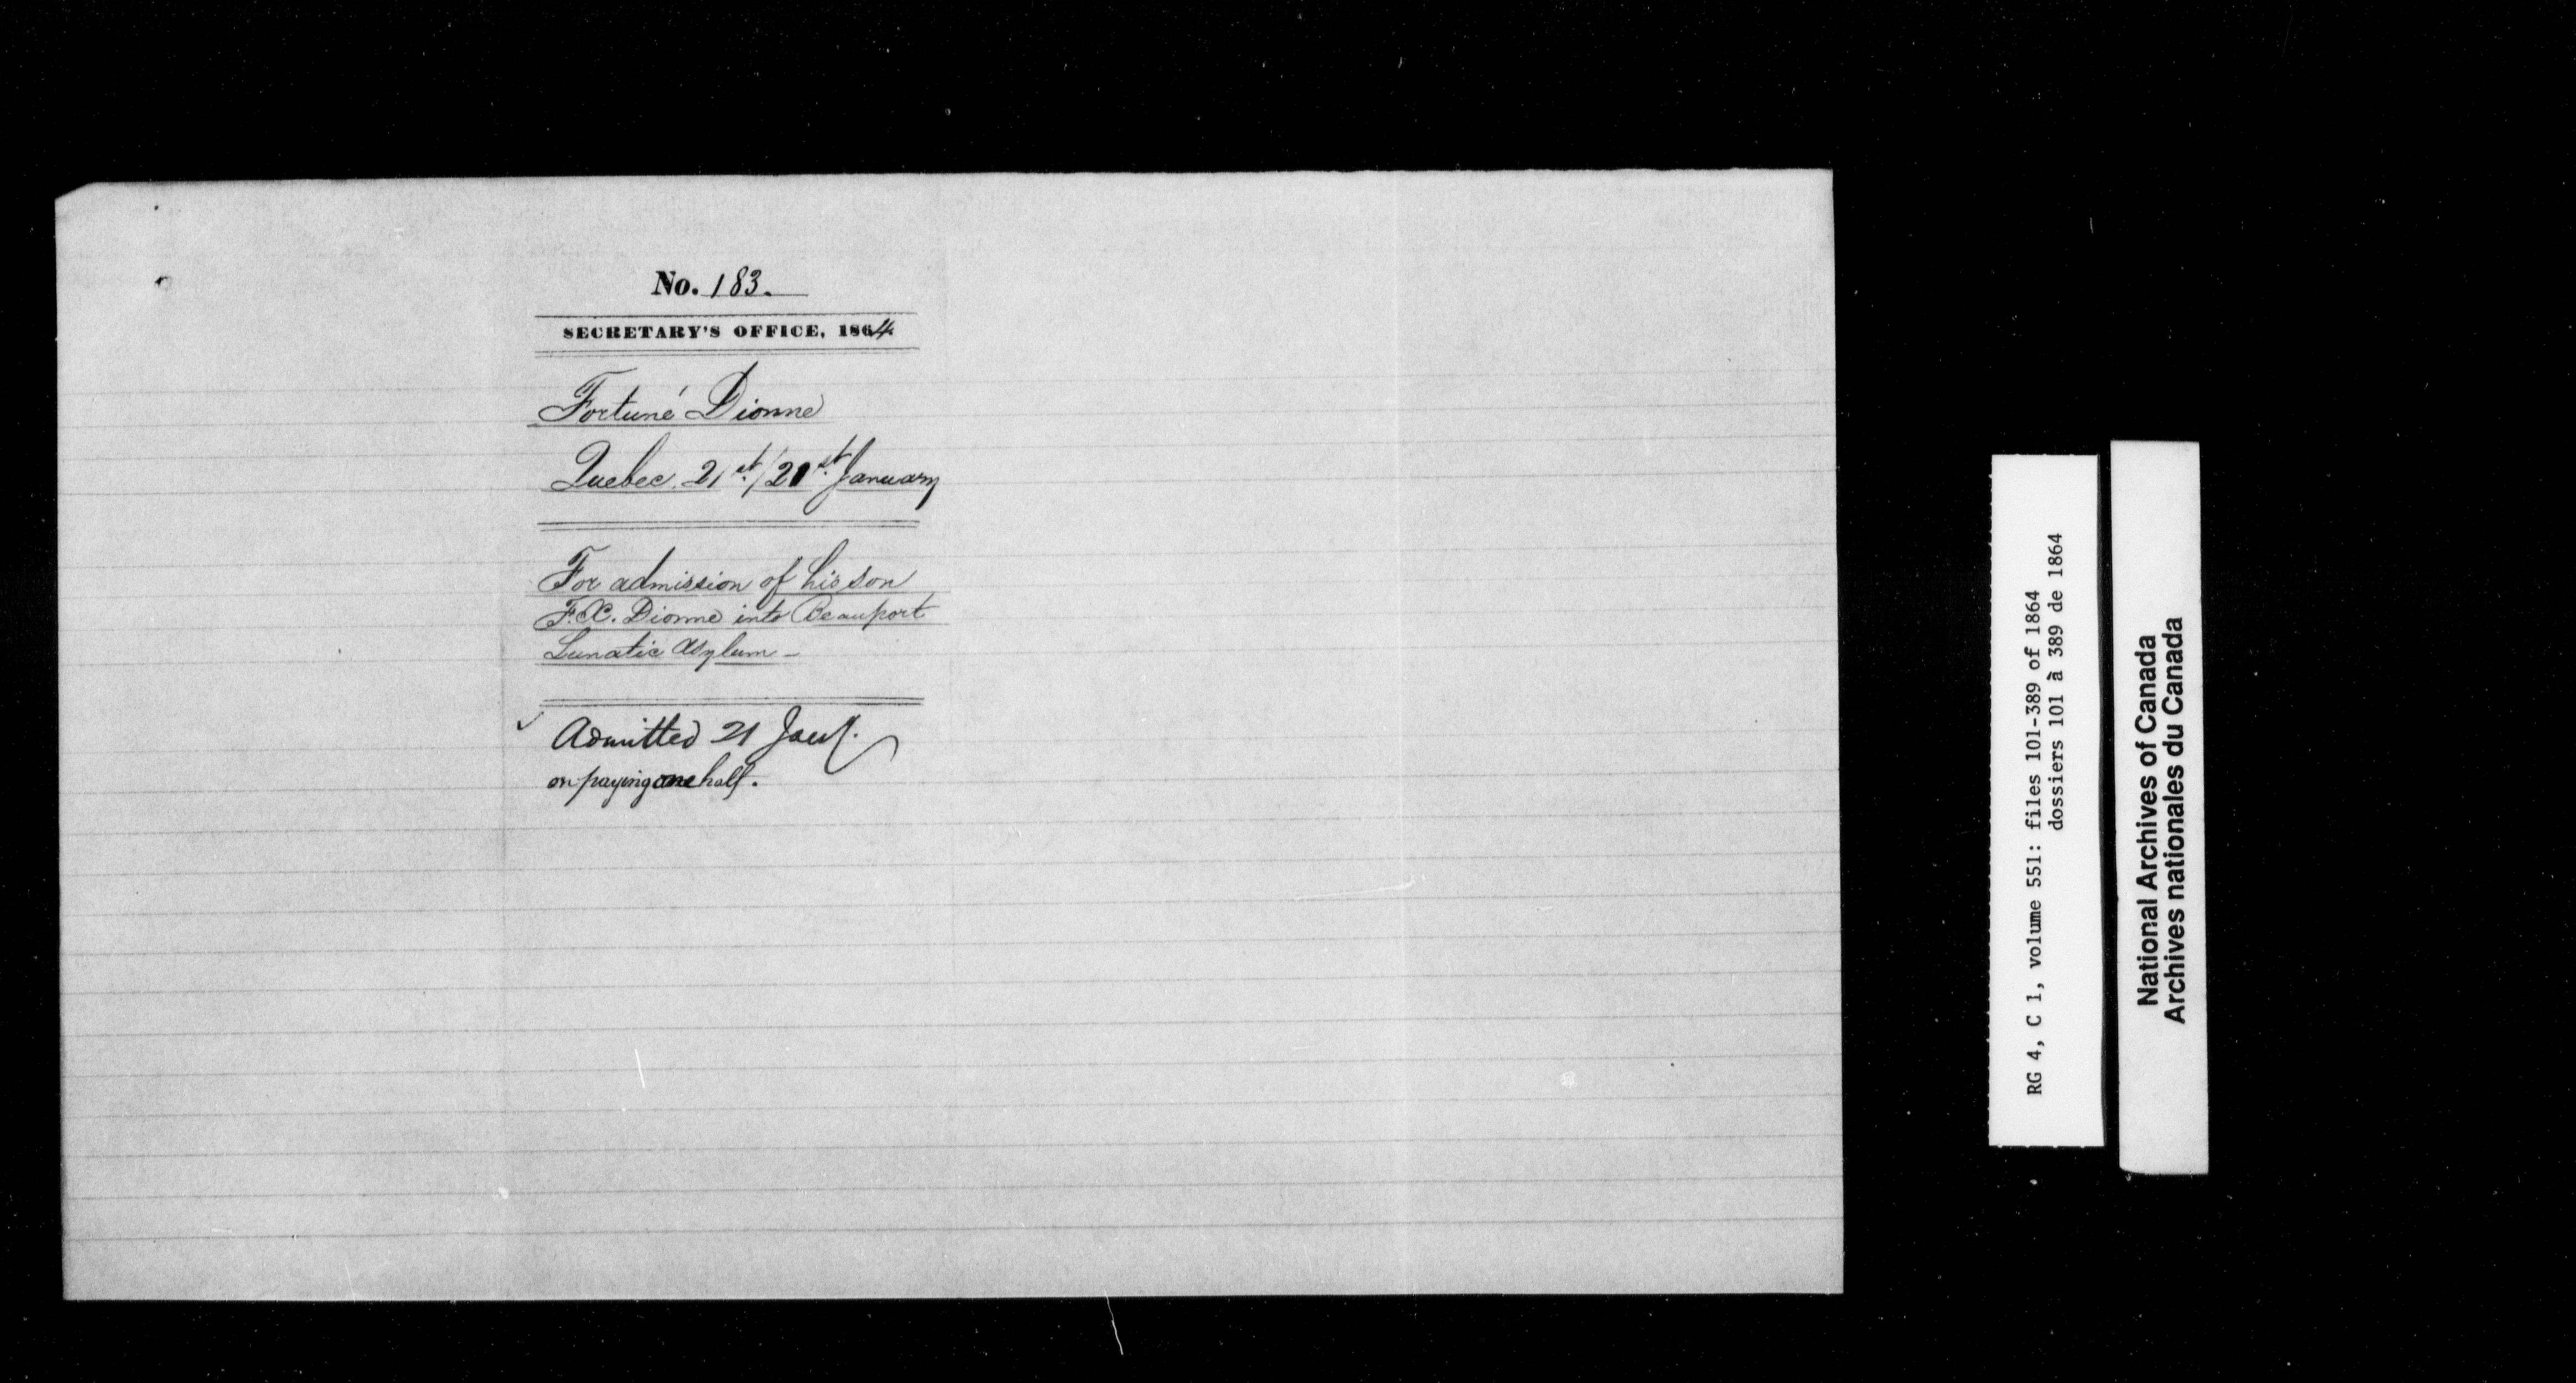 No. 183.
SECRETARY'S OFFICE, 1864
Fortuné Dionne
Quebec. 21st/21st January
For admission of his son
F.X. Dionne into Beauport
Lunatic Asylum -
✓ Admitted 21 Jany.
on paying one half.
RG 4, C 1, volume 551: files 101-389 of 1864
dossiers 101 à 389 de 1864
National Archives of Canada
Archives nationales du Canada